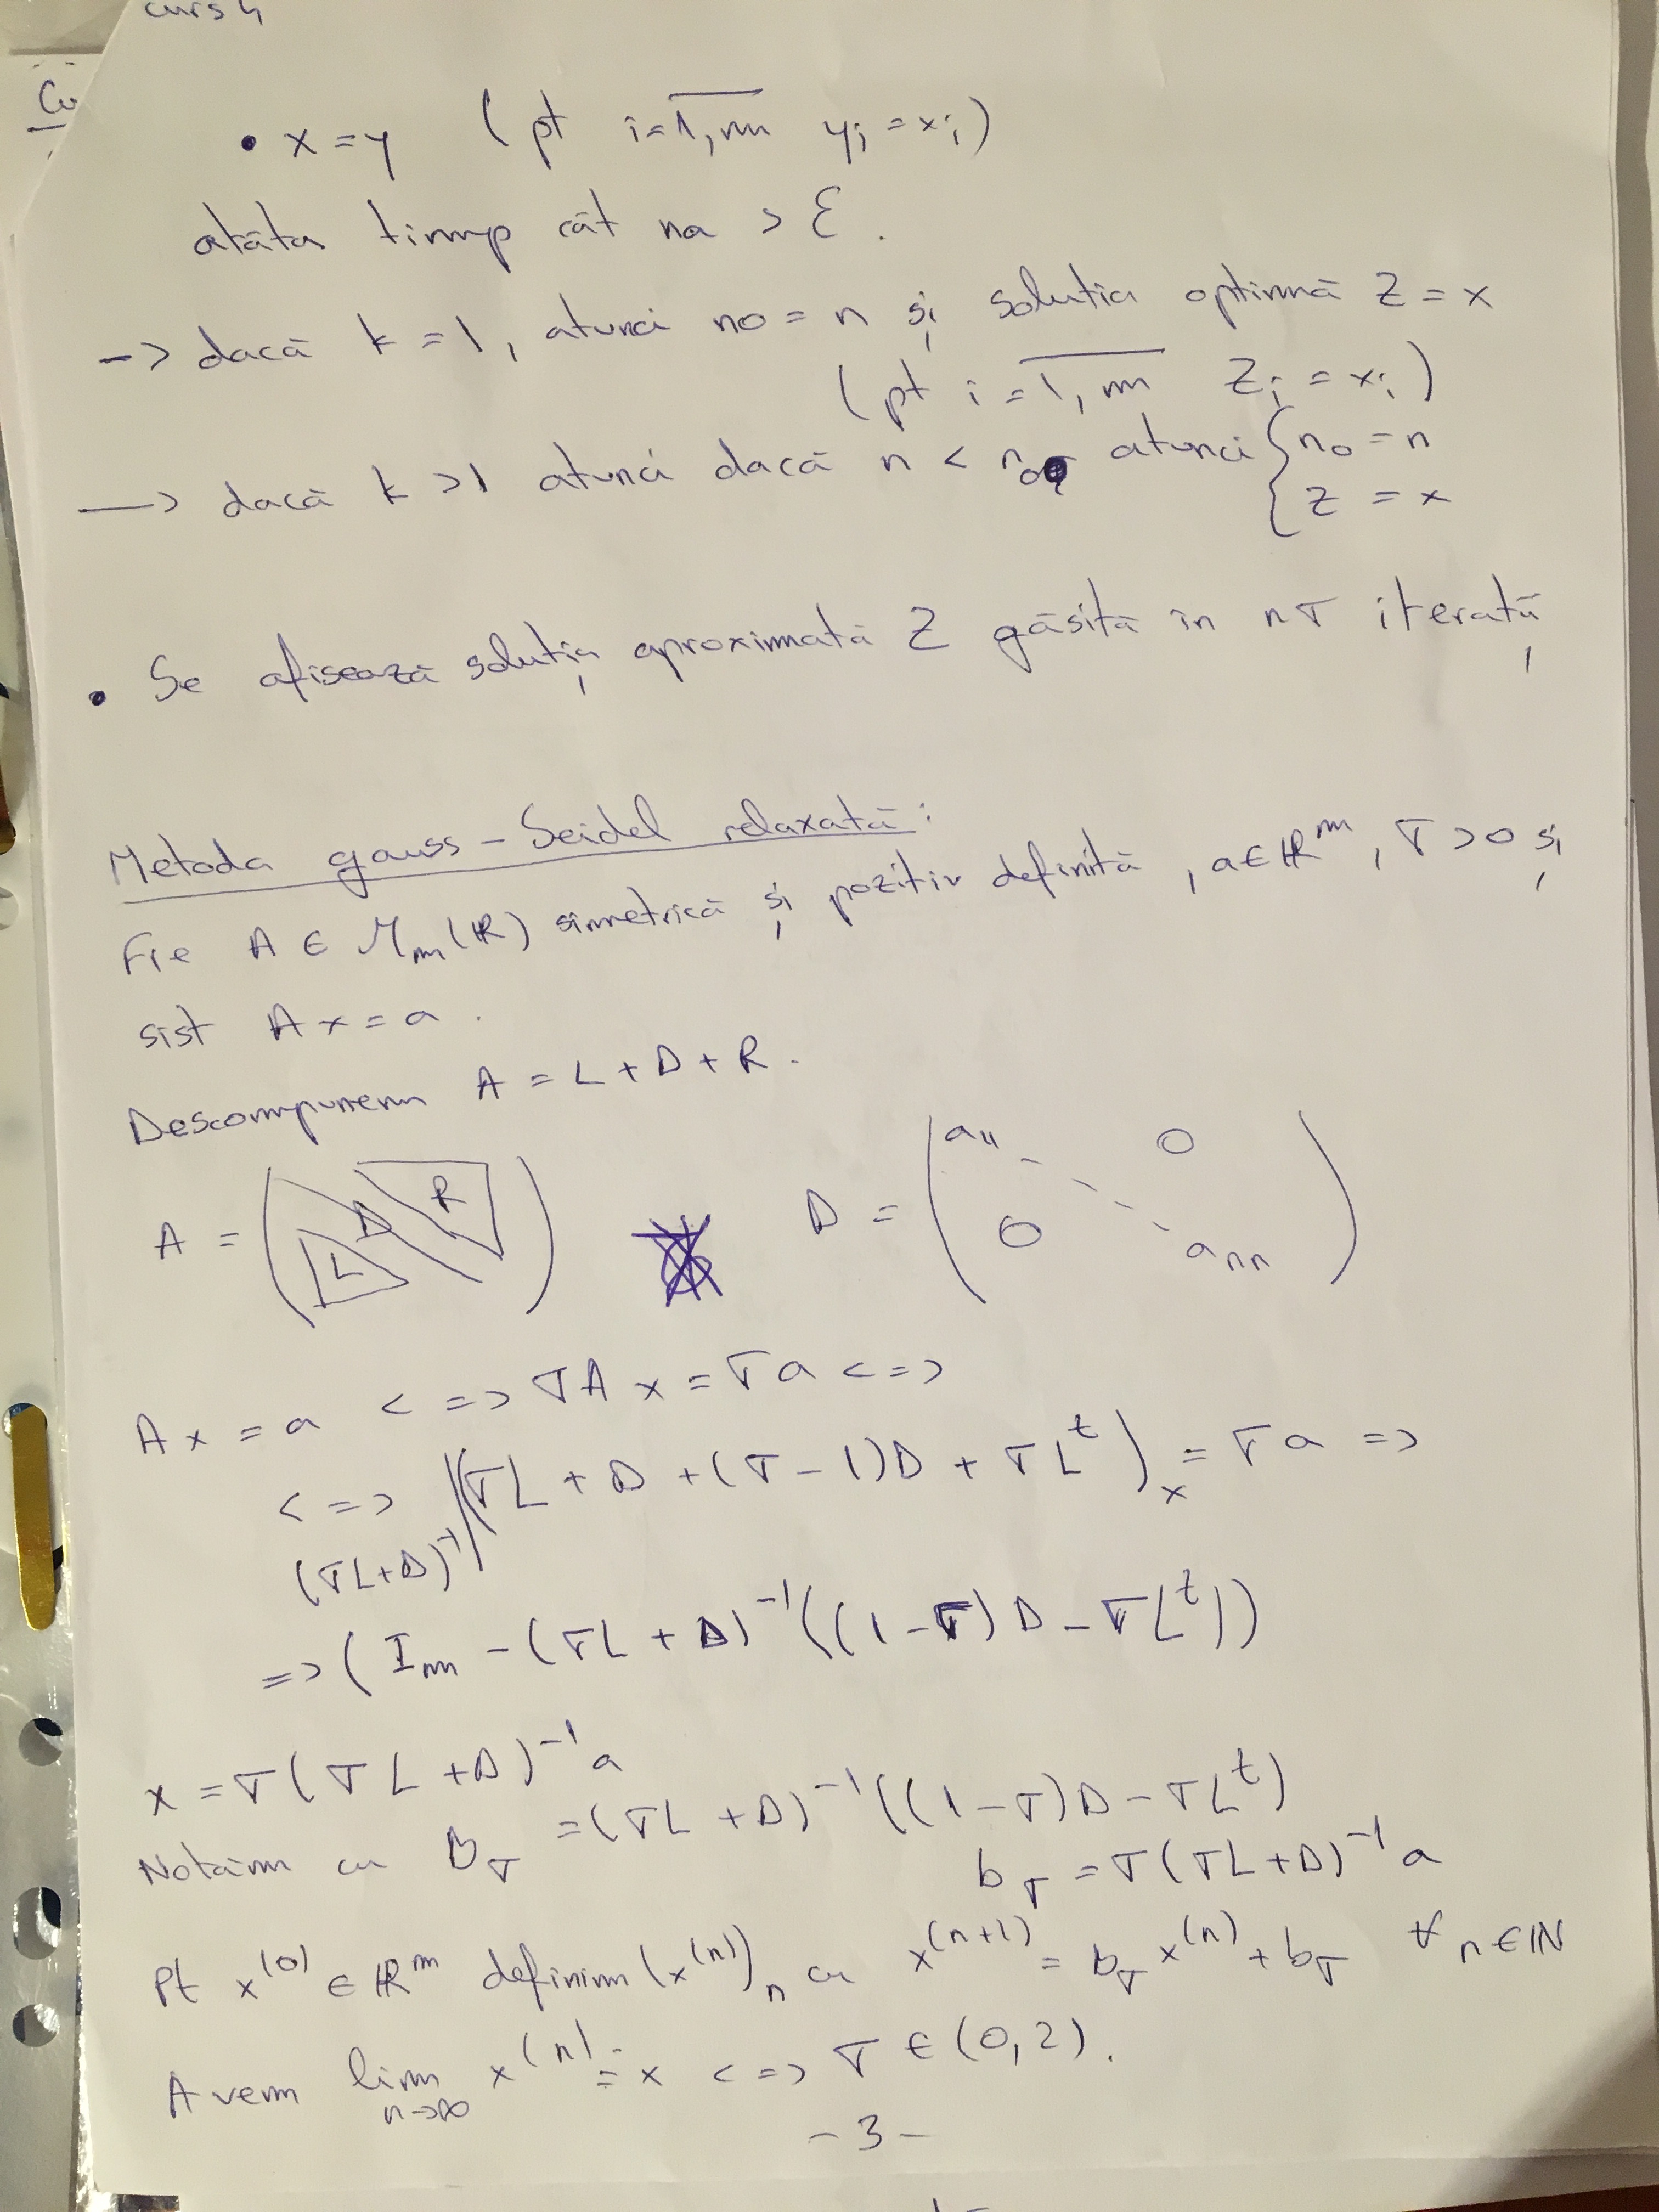 curs 4
Cu
• x = y (pt i=1,m yi = xi)
atâta timp cât na > ε.
-> dacă k = 1, atunci no = n și soluția optimă z = x
(pt i = 1,m zi = xi)
-> dacă k > 1 atunci dacă n < no atunci { no = n
{ z = x
• Se afisează soluția aproximată z găsită în nσ iterații
Metoda gauss - Seidel relaxată:
Fie A ∈ Mm(ℝ) simetrică și pozitiv definită, a∈ℝ^m, σ > 0 și
sist Ax = a.
Descompunem A = L + D + R.
A = ( L D R ) D = ( a11 0 0 ann )
Ax = a <=> σAx = σa <=>
<=> (σL + D + (σ - 1)D + σL^t)x = σa =>
(σL+D)^-1 /
=> (Im - (σL + D)^-1((1-σ)D - σL^t))
x = σ(σL + D)^-1 a
Notăm cu Bσ = (σL + D)^-1((1-σ)D - σL^t)
bσ = σ(σL+D)^-1 a
Pt x^(0) ∈ ℝ^m definim (x^(n))n cu x^(n+1) = bσ x^(n) + bσ ∀ n∈ℕ
Avem lim n->∞ x^(n) = x <=> σ ∈ (0,2).
- 3 -